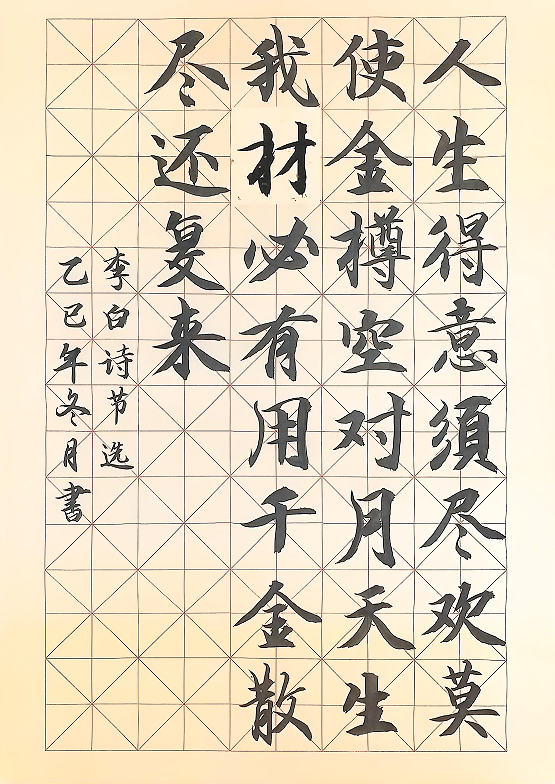 人生得意須尽欢莫
使金樽空对月天生
我材必有用千金散
尽还复来
李白诗节选
乙巳年冬月書